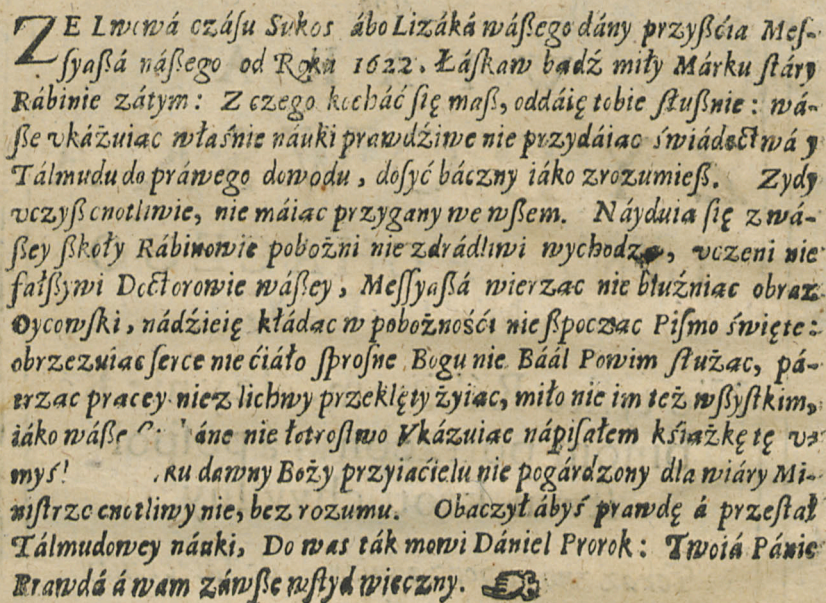 ZE Lwowá czáſu Sukos ábo Lizáká wáßego dány przyßćia Meſ-
ſyaßá náßego od Roku 1622. Łáskaw bądź miły Márku ſtáry
Rábinie zátym: Z czego kocháć się maß, oddáię tobie ſłußnie: wá-
ße vkázuiac właśnie náuki prawdźiwe nie przydáiac świádectwá y
Tálmudu do práwego dowodu, doſyć báczny iáko zrozumieß. Zydy
vczyß cnotliwie, nie máiac przygany we wßem. Náyduia się z wá-
ßey ßkoły Rábinowie pobożni nie zdrádliwi wychodzą, vczeni nie
fałßywi Doctorowie wáßey, Meſſyaßá wierzac nie błuźniac obraz
Oycowſki, nádźieię kłádac w pobożnośći nie ßpoczac Piſmo święte:
obrzezuiac ſerce nie ćiáło ſproſne Bogu nie Báál Powim ſłużac, pá-
trzac pracey niez lichwy przeklęty żyiac, miło nie im też wßyſtkim,
iáko wáße áne nie łotroſtwo Vkázuiac nápiſałem kśiążkę tę v
myś! ku dawny Boży przyiaćielu nie pogárdzony dla wiáry Mi-
niſtrze cnotliwy nie, bez rozumu. Obaczył ábyś prawdę á przeſtał
Tálmudowey náuki, Do was ták mowi Dániel Prorok: Twoiá Pánie
Prawdá á wam záwße wſtyd wieczny.